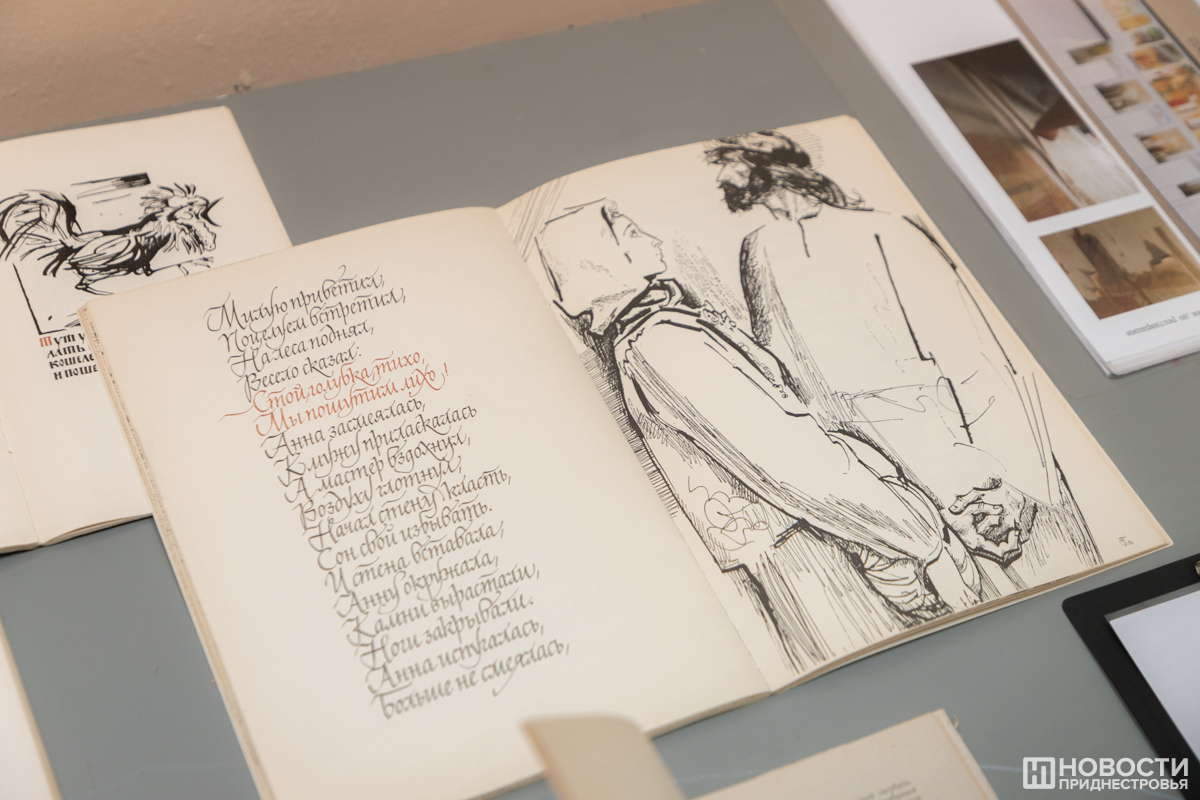 Милую приветил,
Поцелуем встретил,
На леса поднял,
Весело сказал:
Стой голубка тихо,
Мы пошутим лихо!
Анна засмеялась,
К мужу приласкалась
А мастер вздохнул,
Воздуху глотнул,
Начал стену класть,
Сон свой избывать.
И стена вставала,
Анну окружала,
Камни вырастали,
Ноги закрывали.
Анна испугалась,
Больше не смеялась,
Тут у
лать
кошеле
и поше
НОВОСТИ
ПРИДНЕСТРОВЬЯ